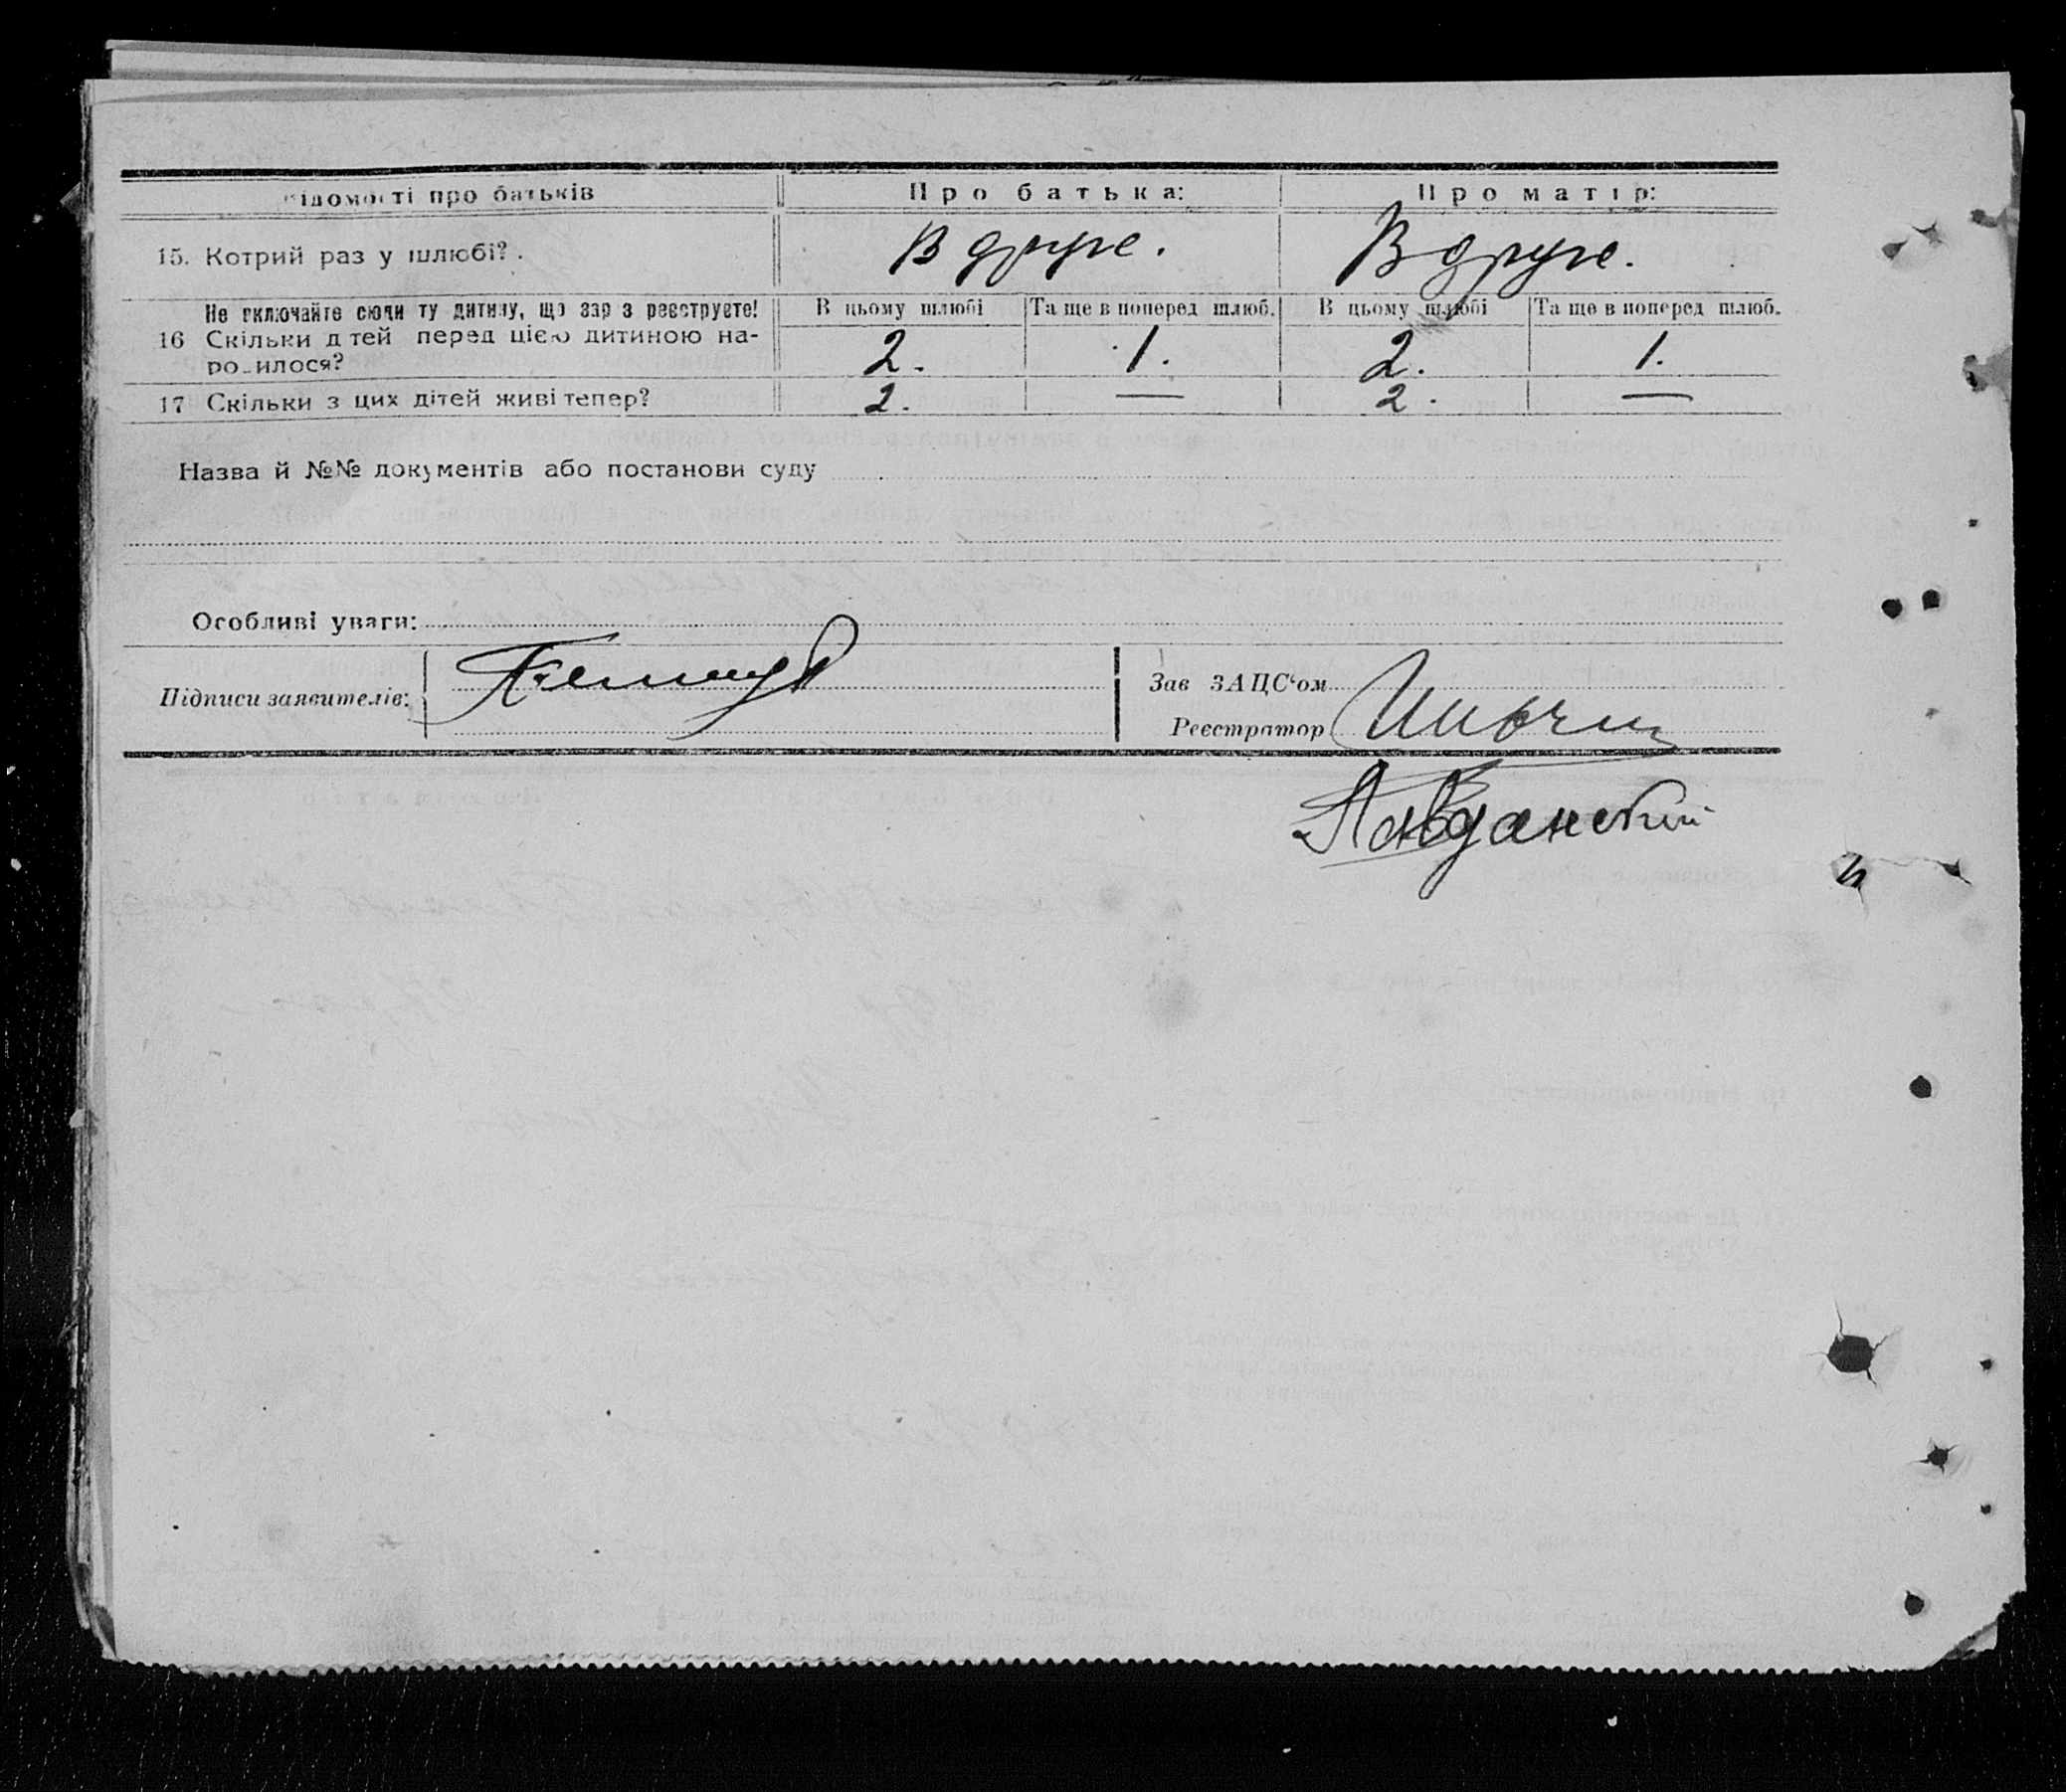 Відомості про батьків Про батька: Про матір:
15. Котрий раз у шлюбі? . Вдруге. Вдруге.
Не включайте сюди ту дитину, що зар з реєструєте! В цьому шлюбі Та ще в поперед шлюб. В цьому шлюбі Та ще в поперед шлюб.
16 Скільки д тей перед цією дитиною на-
родилося? 2. 1. 2. 1.
17 Скільки з цих дітей живі тепер? 2. — 2. —
Назва й №№ документів або постанови суду
Особливі уваги:
Підписи заявителів:
Зав ЗАЦС‘ом
Реєстратор